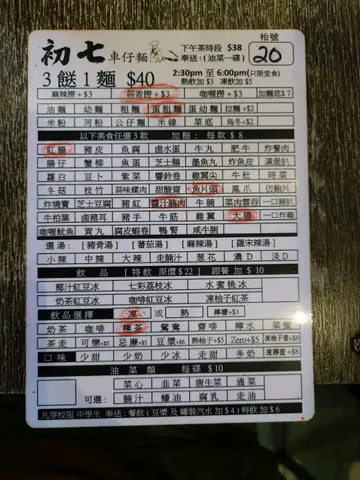 初七 車仔麵
下午茶時段 $38
奉送：(油菜一碟)
枱號
20
3餸1麵 $40
2:30pm 至 6:00pm (只限堂食)
熱飲加$3 凍飲加$5
麻辣撈+$3 蒜香撈+$3 咖喱撈+$3 加麵底$7
油麵 幼麵 粗麵 蛋粗麵 蛋幼麵 拉麵+$2
米粉 河粉 公仔麵 米線 菜底 烏冬+$2
以下美食任選3款 加餸：每款 $8
紅腸 豬皮 魚腐 鹵水蛋 牛丸 肥牛 炸餐肉
腸仔 蟹柳 魚蛋 芝士腸 墨魚丸 炸魚皮 漢堡扒
蘿白 豆卜 紫菜 響鈴卷 雞翼尖 牛肚 時菜
冬菇 枝竹 蒜味螺肉 甜酸齋 魚片頭 鳳爪 仿鮑片
炸燒賣 芝士豆腐 豬紅 醬汁腩肉 牛腩 菜肉雲吞 一口豬扒
牛柏葉 鹵豬耳 豬手 牛筋 雞翼 大腸 一口炸雞
咖喱魷魚 貢丸 腐皮蝦卷 鴨腎 咸牛脷
選湯：[豬骨湯] [番茄湯] [麻辣湯] [蘿宋辣湯]
小辣 中辣 大辣 走腩汁 葱花 濃D 淡D
飲品 [特飲 原價$22] 跟餐加$10
椰汁紅豆冰 七彩荔枝冰 水蜜桃冰
奶茶紅豆冰 咖啡紅豆冰 凍柚子紅茶
飲品選擇 凍 或 熱 檸檬+$3
奶茶 咖啡 檸茶 鴛鴦 齋啡 檸水 菜蜜
茶走 可樂+$5 忌廉+$5 豆漿+$6 熱柚子+$5 Zero+$5 凍柚子蜜+$8
口味 少甜 少奶 少冰 走甜 多奶 凍檸蜜+$8
油菜類 每碟 $10
菜心 韭菜 唐生菜 通菜
可選：腩汁 蠔油 腐乳 走油
凡穿校服 中學生 奉送：餐飲 (豆漿 及 罐裝汽水加$4) 特飲加$6